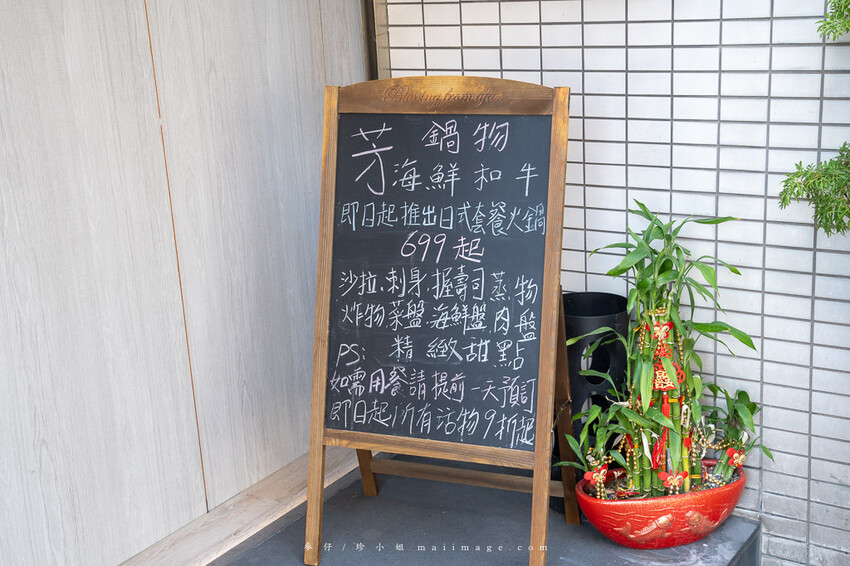 芳 鍋物
海鮮和牛
即日起推出日式套餐火鍋
699起
沙拉、刺身、握壽司 蒸物
炸物 菜盤 海鮮盤 肉盤
PS: 精緻甜點
如需用餐請提前一天預訂
即日起所有活物9折起
麥仔/珍小姐 maiimage.com